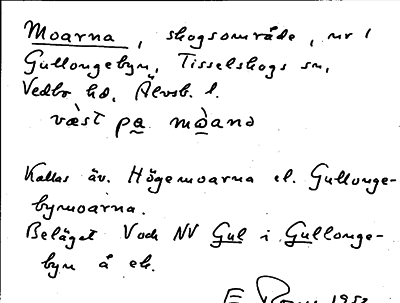 Moarna, skogsområde, nr 1
Gullongebyn, Tisselskogs sn,
Vedbo hd, Älvsb. l.
væ̀st pa mòana
Kallas äv. Högemoarna el. Gullonge-
bymoarna.
Beläget V och NV Gul i Gullonge-
byn å ek.
E